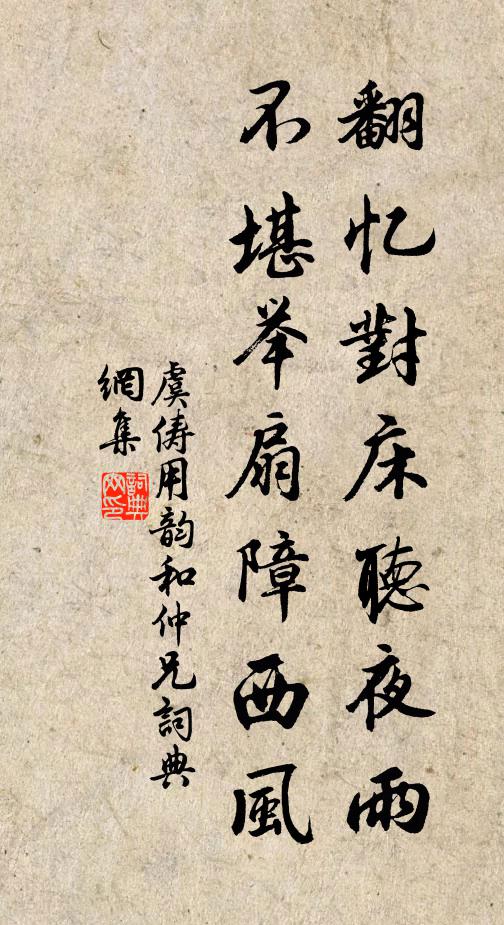 翻忆對床聽夜雨
不堪举扇障西風
虞俦用韵和仲兄詞典
網集
詞典
网印